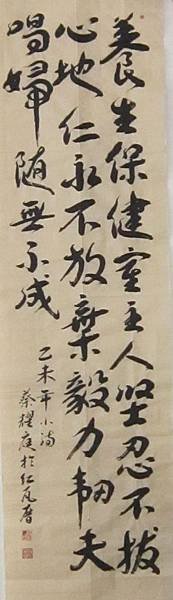 養生保健室主人堅忍不拔
心地仁永不放棄毅力韌夫
唱婦随無不成
乙未年小滿
蔡耀庭於紅瓦厝